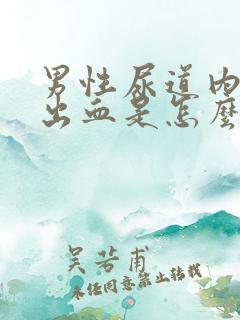 男性尿道内
出血是怎麼
吴若甫
未任同意禁止转载